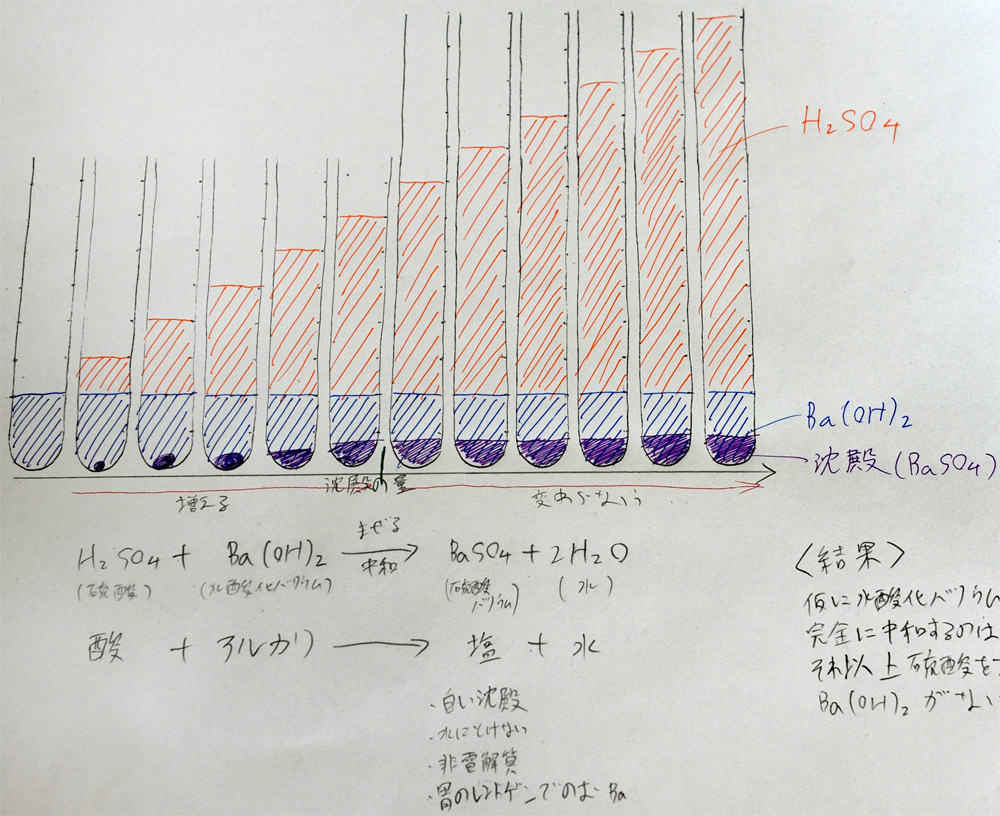 H₂SO₄
Ba(OH)₂
沈殿(BaSO₄)
増える
沈殿の量
変わらない
H₂SO₄ + Ba(OH)₂ まぜる 中和 → BaSO₄ + 2H₂O
(硫酸) (水酸化バリウム) (硫酸バリウム) (水)
酸 + アルカリ → 塩 + 水
・白い沈殿
・水にとけない
・非電解質
・胃のレントゲンでのむ Ba
〈結果〉
仮に水酸化バリウム
完全に中和するのは
それ以上硫酸を
Ba(OH)₂がない